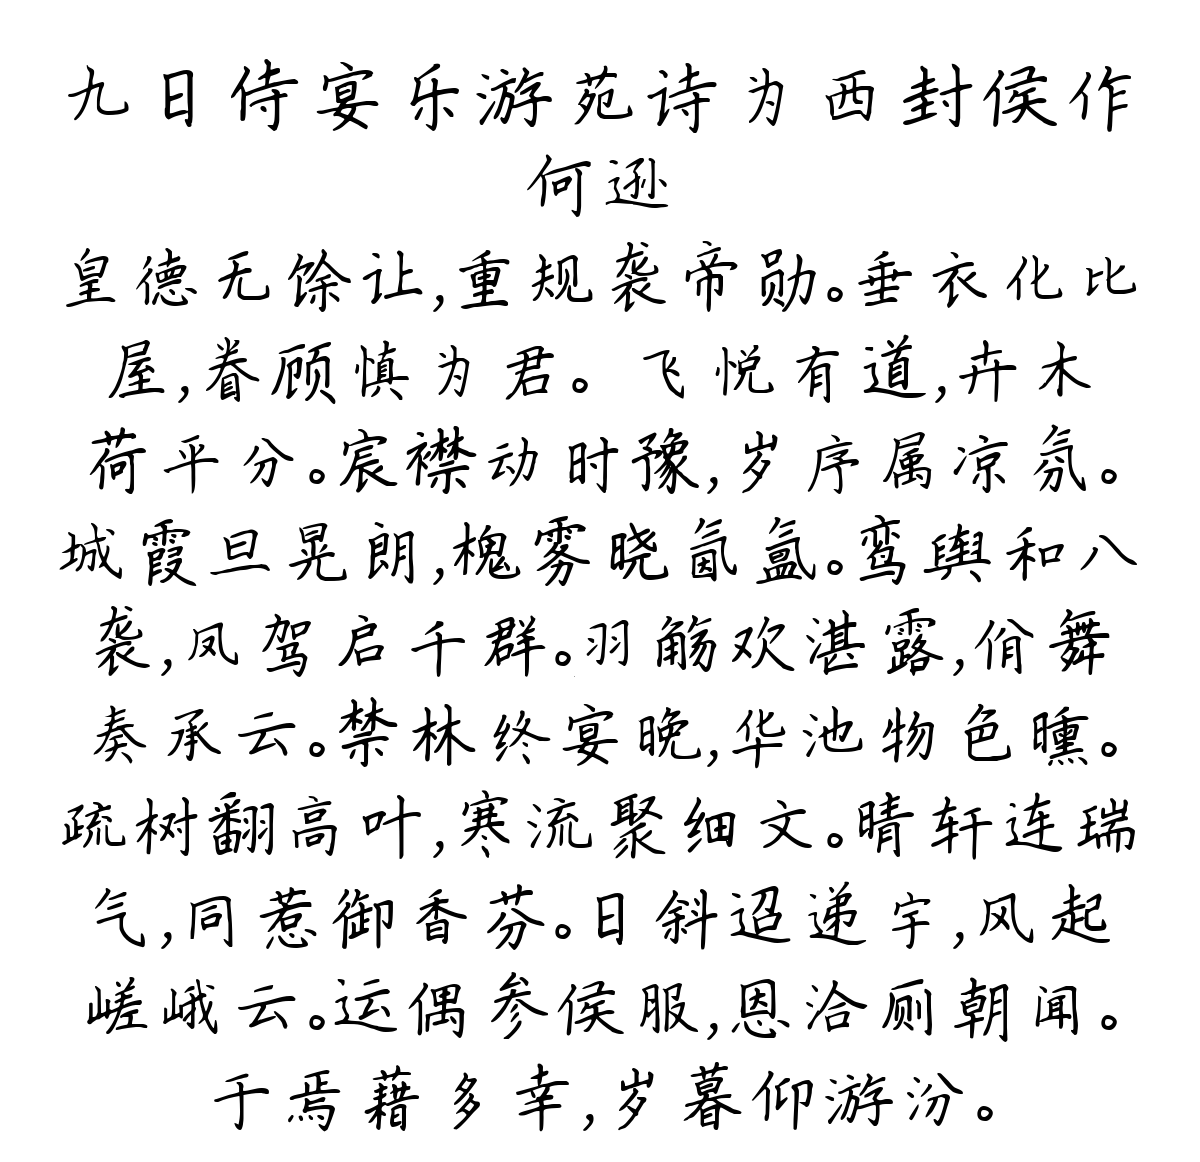 九日侍宴乐游苑诗为西封侯作
何逊
皇德无馀让,重规袭帝勋。垂衣化比
屋,眷顾慎为君。飞悦有道,卉木
荷平分。宸襟动时豫,岁序属凉氛。
城霞旦晃朗,槐雾晓氤氲。鸾舆和八
袭,凤驾启千群。羽觞欢湛露,佾舞
奏承云。禁林终宴晚,华池物色曛。
疏树翻高叶,寒流聚细文。晴轩连瑞
气,同惹御香芬。日斜迢递宇,风起
嵯峨云。运偶参侯服,恩洽厕朝闻。
于焉藉多幸,岁暮仰游汾。